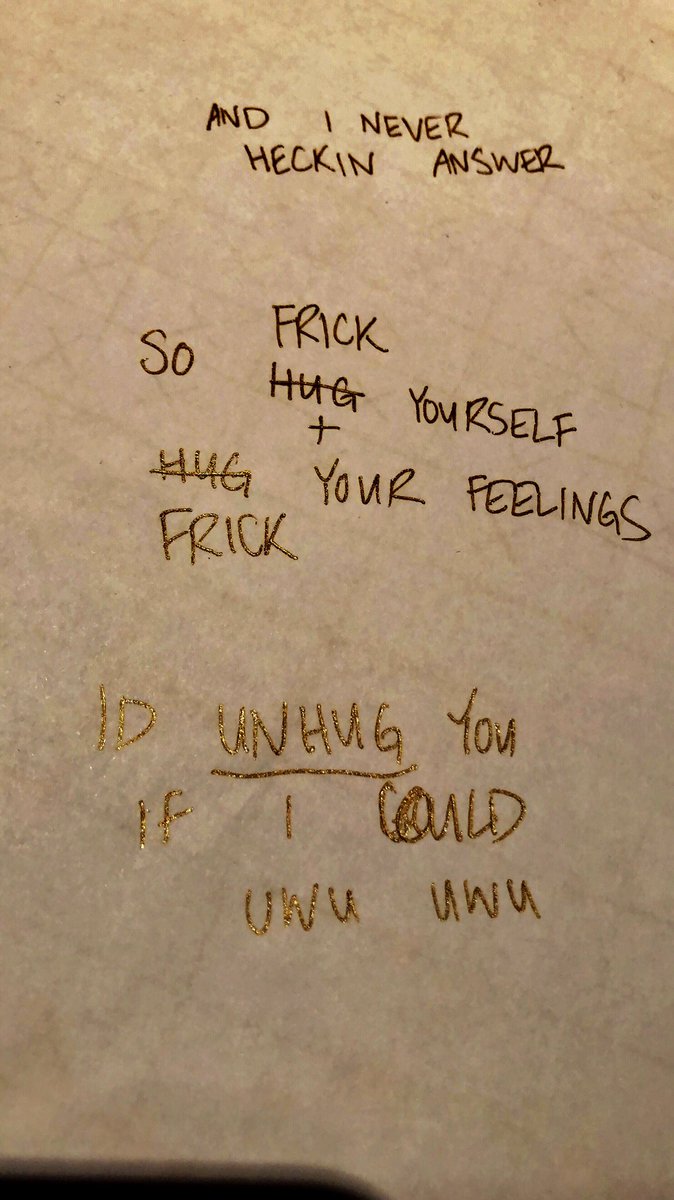 AND I NEVER
HECKIN ANSWER
FRICK
SO HUG YOURSELF
+
HUG YOUR FEELINGS
FRICK
ID UNHUG YOU
IF I COULD
UWU UWU